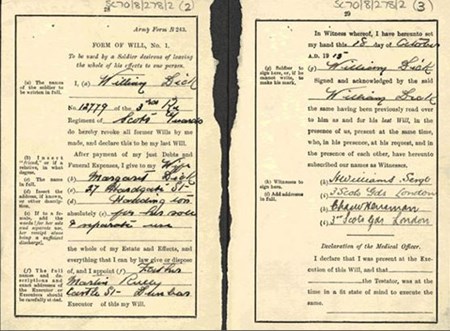 SC70/8/278/2 (2)
28
Army Form B 243.
FORM OF WILL, No. 1.
To be used by a Soldier desirous of leaving
the whole of his effects to one person.
(a) The name
of the soldier to
be written in full.
I, (a) William Dick
No. 12779 of the 3rd
Regiment of Scots Guards
do hereby revoke all former Wills by me
made, and declare this to be my last Will.
After payment of my just Debts and
Funeral Expenses, I give to my Wife
(b) Insert
"friend," or if a
relative, in what
degree.
(c) The name
in full.
(d) Insert the
address, if known,
or other descrip-
tion.
(e) If to a fe-
male the words
("for her sole
and separate use,
her receipt alone
being a sufficient
discharge").
(b) Margaret Dick
(c) 27 St.
(d) Haddington
absolutely (e) for her sole
& separate use
the whole of my Estate and Effects, and
everything that I can by law give or dispose
of, and I appoint (f)
(f) The full
names and de-
scriptions and
exact addresses of
the Executor or
Executors should
be carefully stated.
Martin
Castle St Dunbar
Executor of this my Will.
SC70/8/278/2 (3)
29
In Witness whereof, I have hereunto set
my hand this day of October
A.D. 1915
(g) Soldier to
sign here, or, if he
cannot write, to
make his mark.
(g) William Dick
Signed and acknowledged by the said
William Dick
the same having been previously read over
to him as and for his last Will, in the
presence of us, present at the same time,
who, in his presence, at his request, and in
the presence of each other, have hereunto
subscribed our names as Witnesses.
(h) Witnesses to
sign here.
(i) Add address
in full.
(h) Williams Sergt
(i) 3 Scots Gds London
(h)
(i) 3rd Scots Gds London
Declaration of the Medical Officer.
I declare that I was present at the Exe-
cution of this Will, and that
the Testator, was at the
time in a fit state of mind to execute the
same.